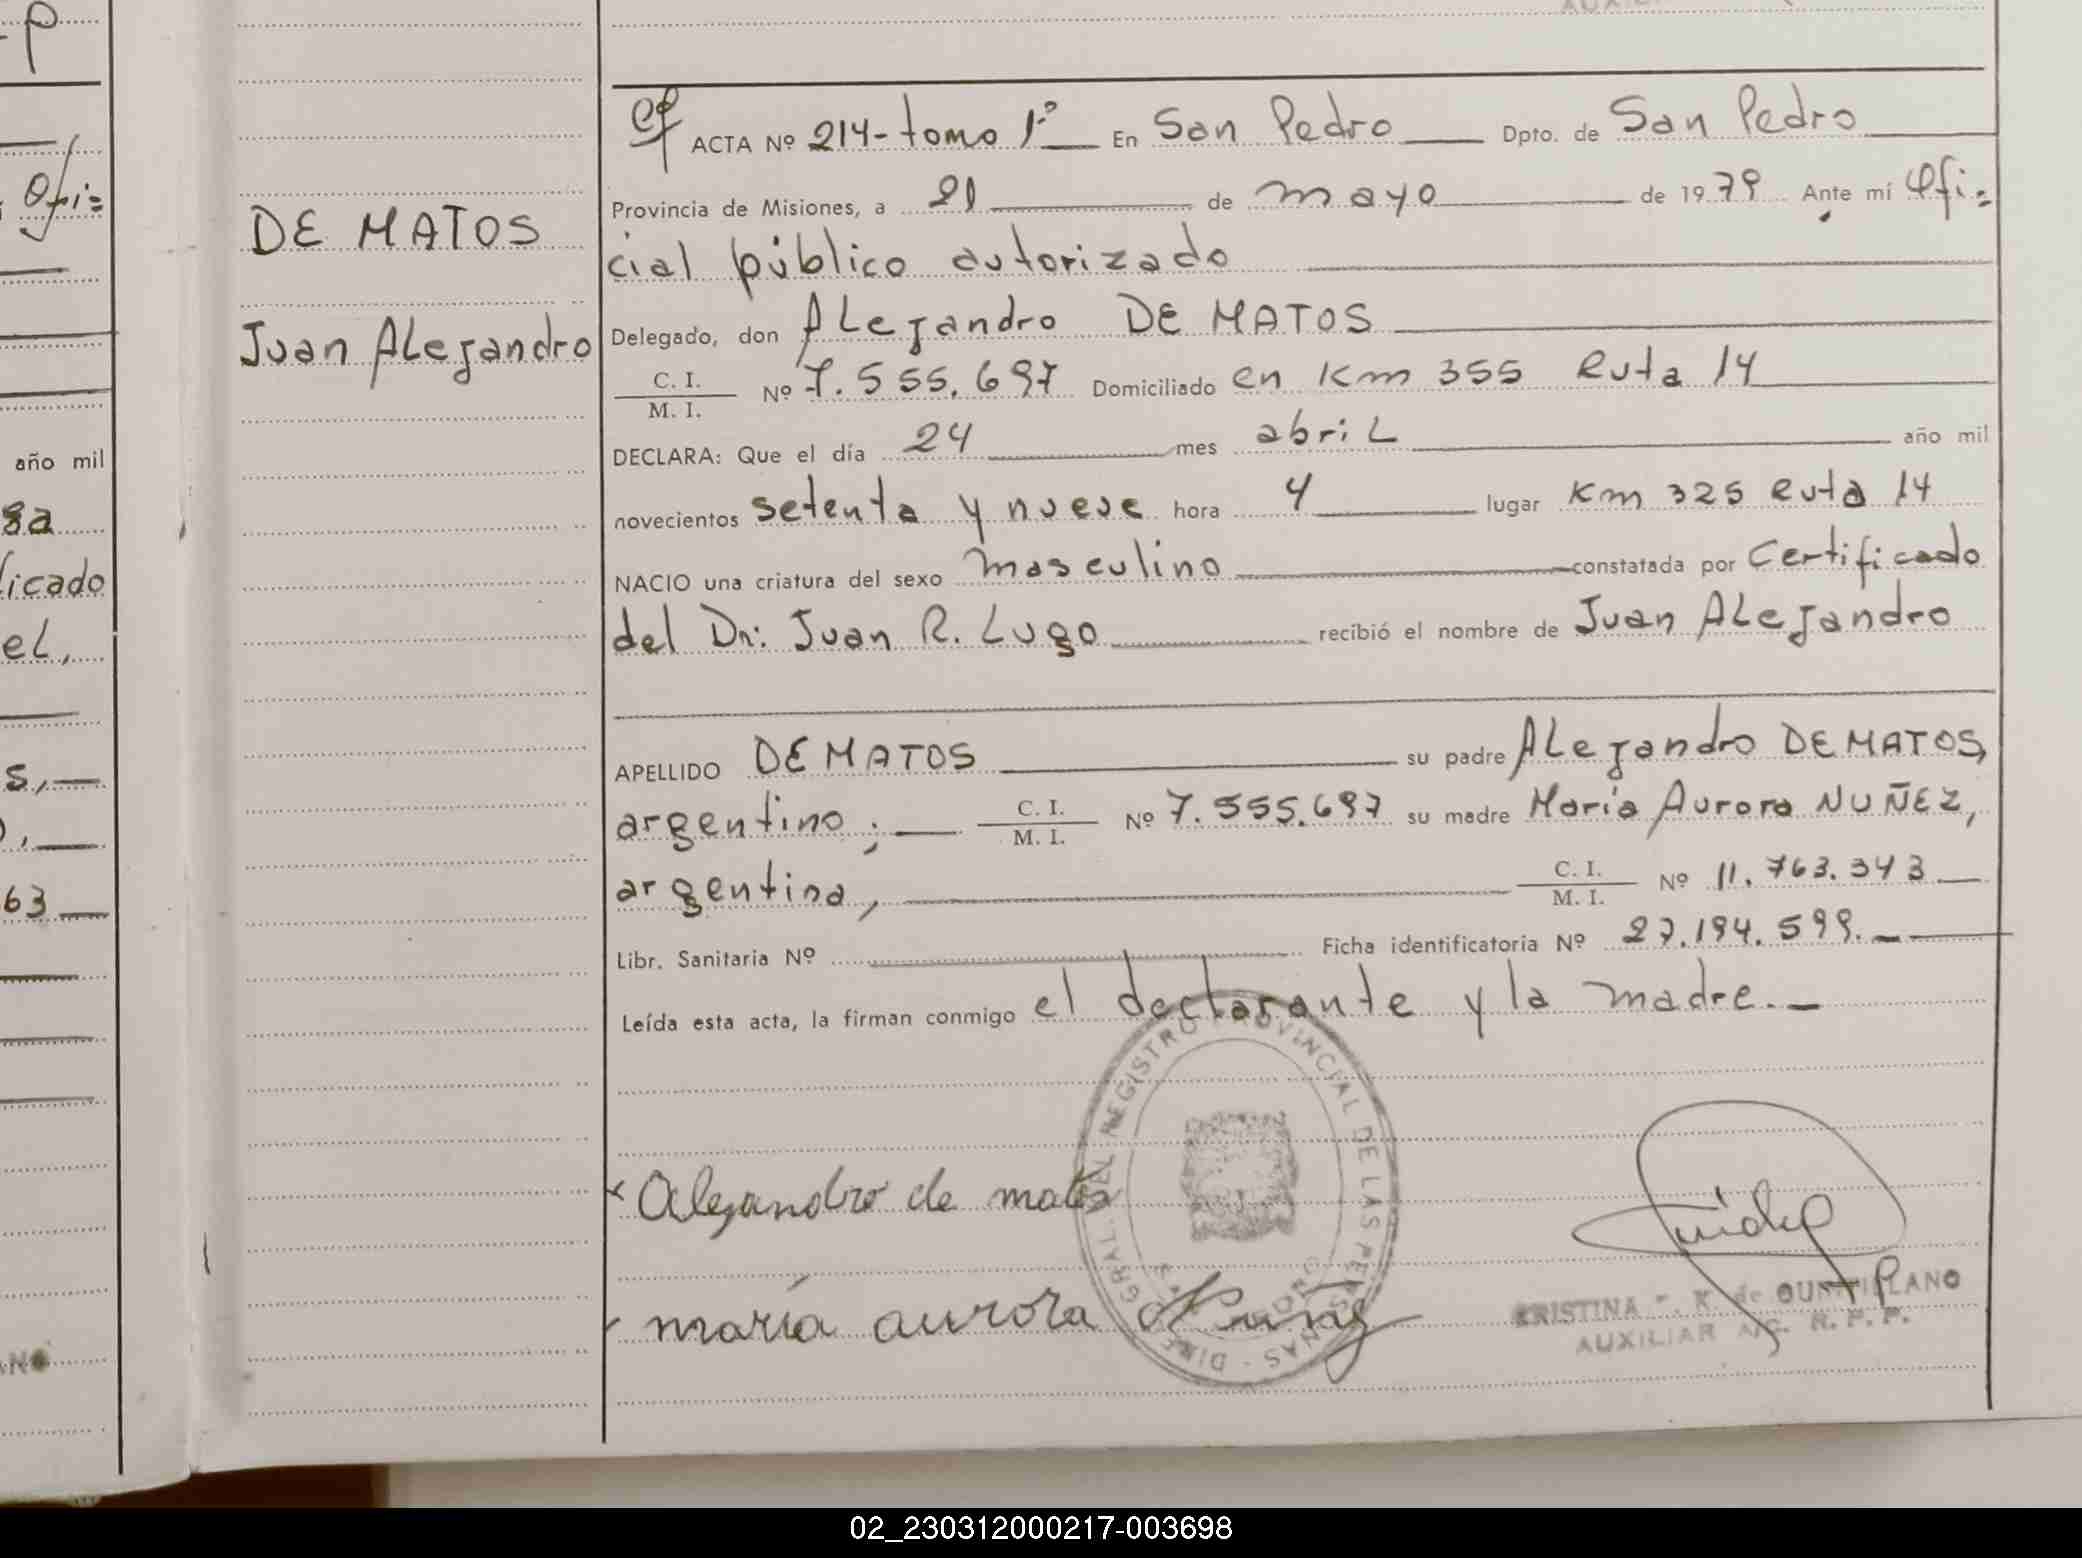 DE MATOS
Juan Alejandro
ACTA Nº 214- tomo 1º En San Pedro Dpto. de San Pedro
Provincia de Misiones, a 21 de mayo de 1979 Ante mí Ofi=
cial público autorizado
Delegado, don Alejandro DE MATOS
C. I. / M. I. Nº 7.555.697 Domiciliado en Km 355 Ruta 14
DECLARA: Que el día 24 mes abril año mil
novecientos setenta y nueve hora 4 lugar Km 325 Ruta 14
NACIO una criatura del sexo masculino constatada por Certificado
del Dr: Juan R. Lugo recibió el nombre de Juan Alejandro
APELLIDO DE MATOS su padre Alejandro DE MATOS,
argentino; C. I. / M. I. Nº 7.555.697 su madre María Aurora NUÑEZ,
argentina, C. I. / M. I. Nº 11.763.343
Libr. Sanitaria Nº Ficha identificatoria Nº 27.194.599.
Leída esta acta, la firman conmigo el declarante y la madre.
REGISTRO PROVINCIAL DE LAS PERSONAS
Alejandro de matos
maría aurora Nuñez
AUXILIAR
R. P. P.
año mil
02_230312000217-003698